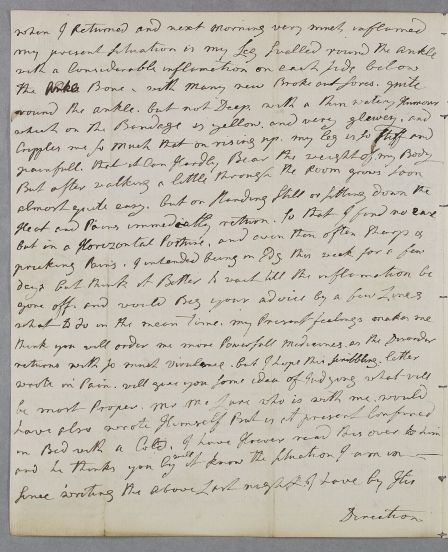 when I Returned and next morning very much inflamed
my present situation is my Leg Swelled round the ankle
with a Considerable inflamation on each side below
the Bone with many new Broke out Sores. quite
round the ankle. but not Deep, with a thin watery Humour
which on the Bandage is yellow. and very glewey. and
Cripples me so much that on rising up. my leg is so Stiff and
painfull. that it Can Hardly Bear the weight of my Body
But after walking a little through the Room grows soon
almost quite easy. but on standing still or sitting down the
Heat and Pains immediatly return. so that I find no ease
but in a Horizontal Posture. and even then often sharp &
pricking Pains. I intended being in this week for a few
days but think it Better to wait till the inflamation be
gone off. and would Beg your advice by a few Lines
what to do in the mean Time. my Present feelings makes me
think you will order me more Powerfull Medicines. as the Disorder
returns with so much virulence. but I hope this scribbling letter
wrote in Pain. will give you some idea of Judging what will
be most Proper. Mr who is with me. would
have also wrote Himself But is at present Confined
in Bed with a Cold. I have However read this over to him
and he thinks you will by it know the situation I am in
Since writing the above Last night I have by His
Direction